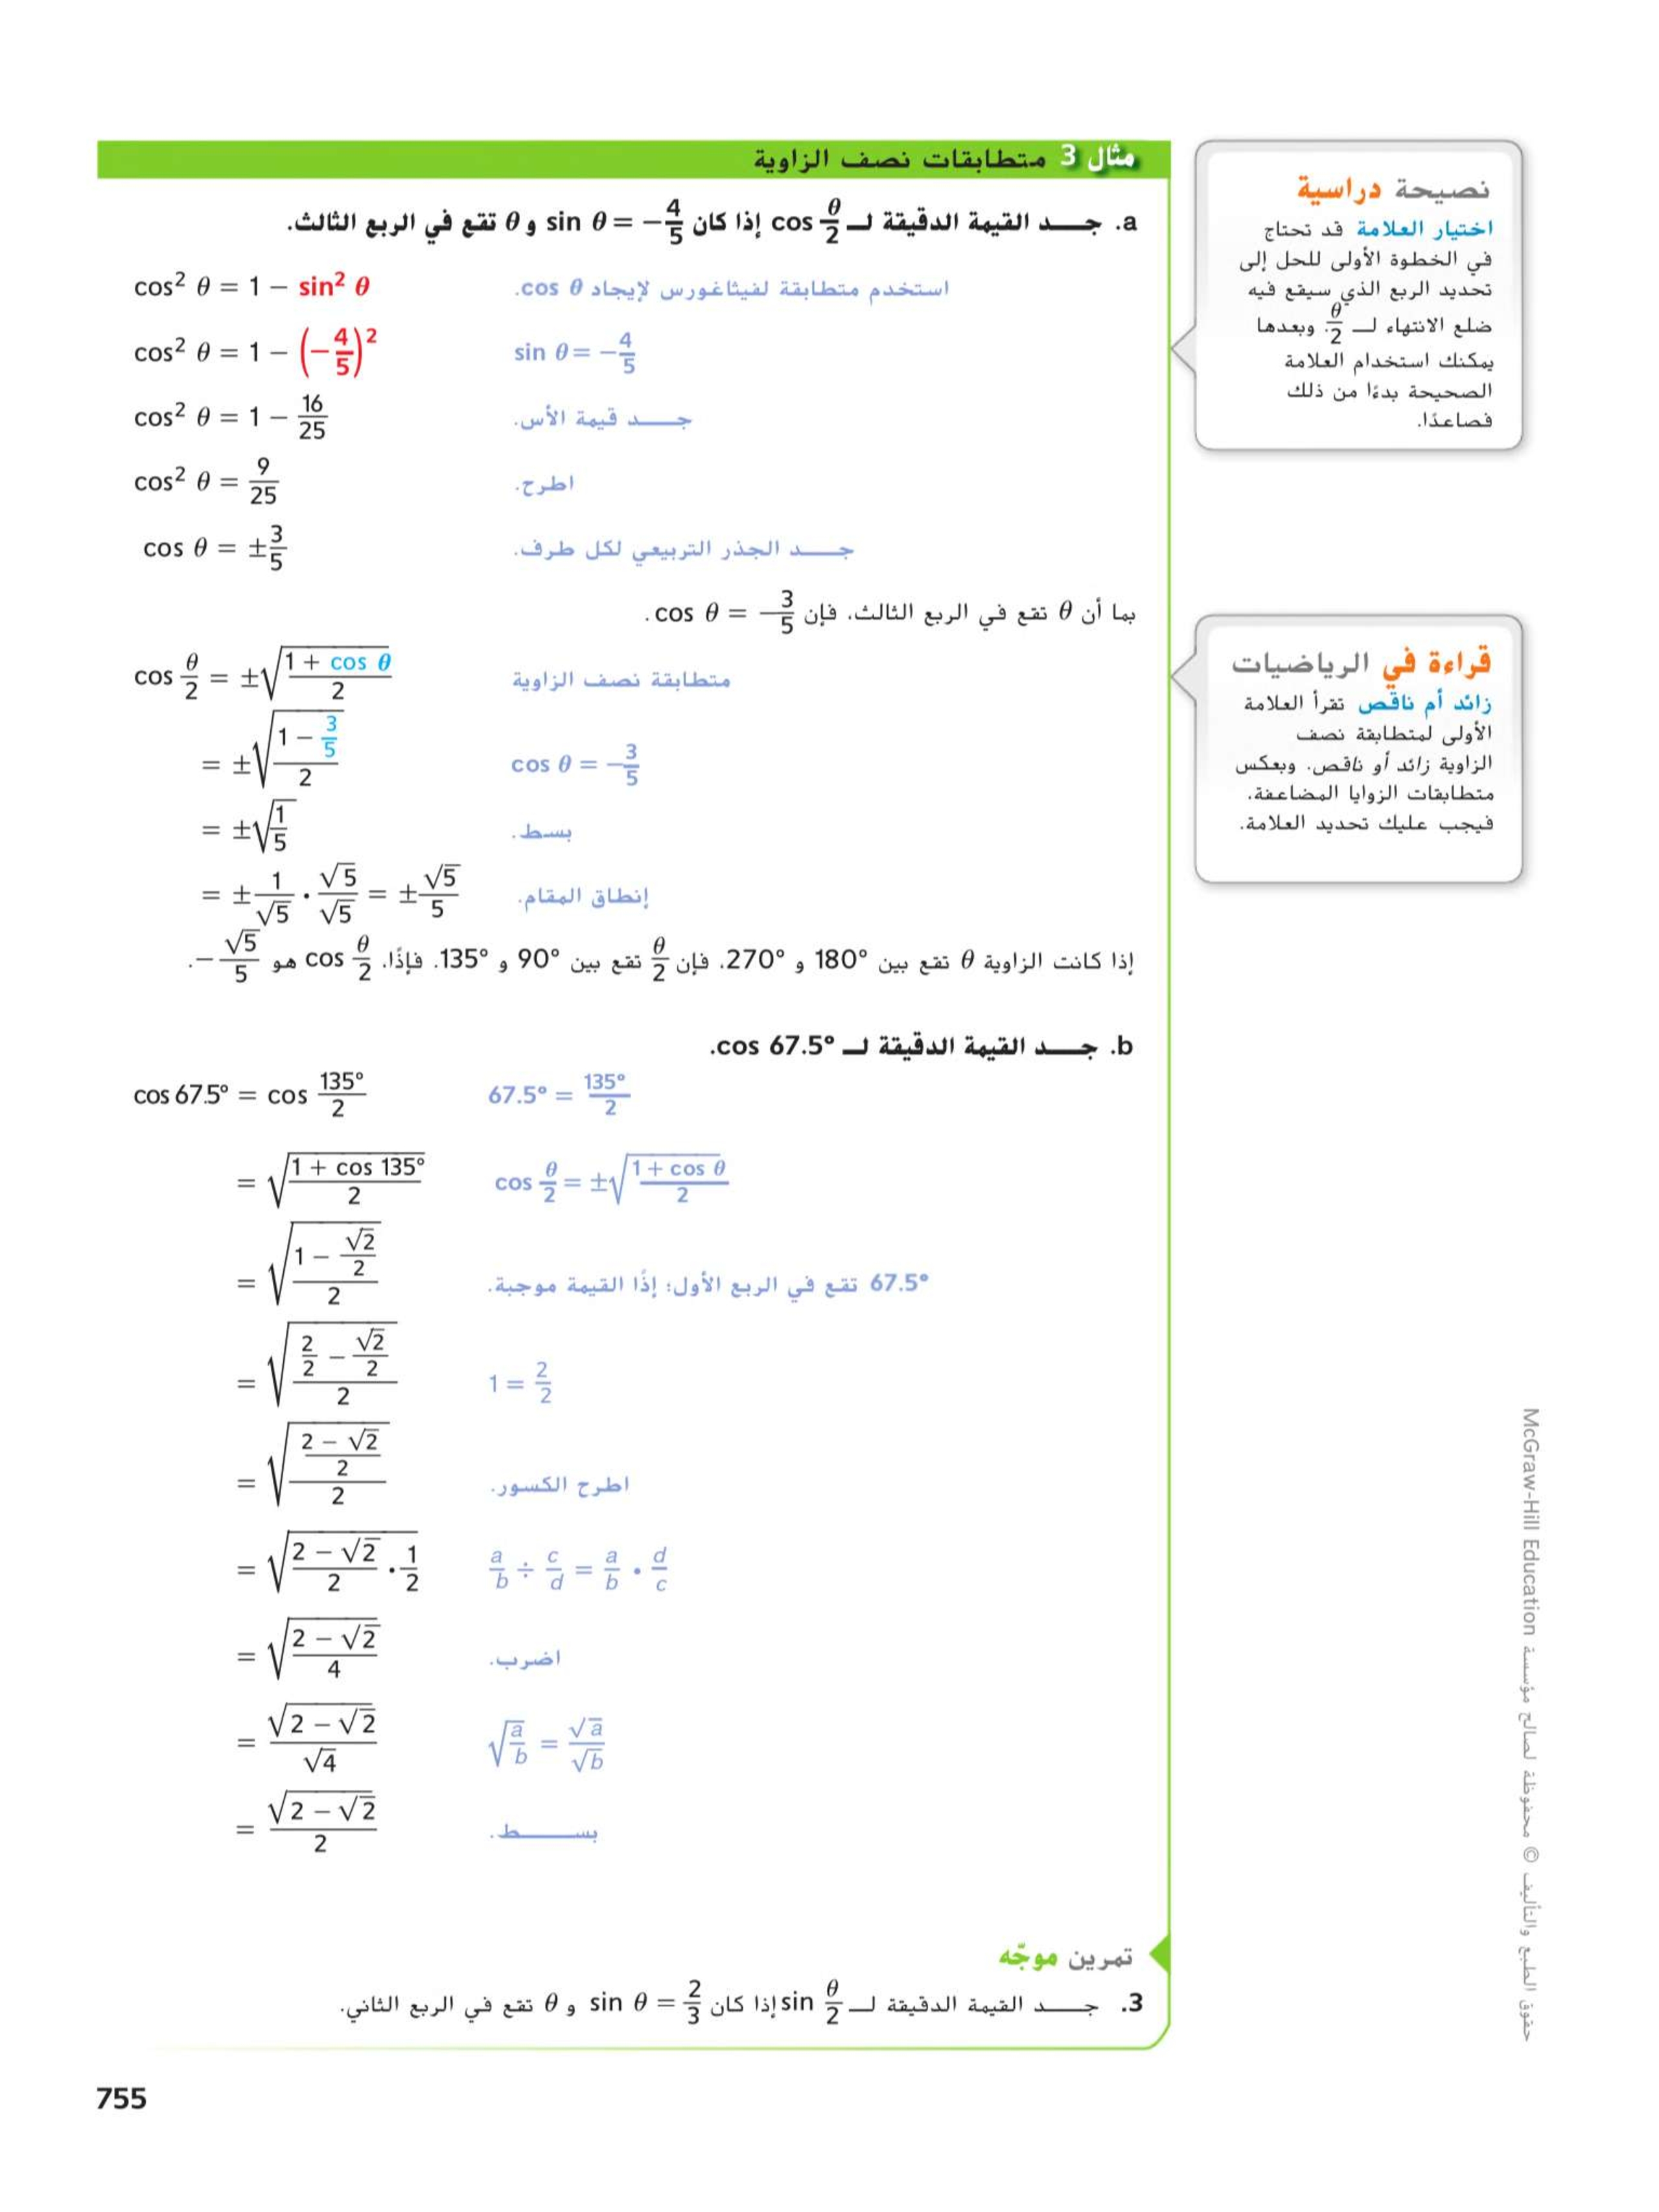 مثال 3 متطابقات نصف الزاوية
a. جـــد القيمة الدقيقة لـ cos θ/2 إذا كان sin θ = −4/5 و θ تقع في الربع الثالث.
cos² θ = 1 − sin² θ استخدم متطابقة لفيثاغورس لإيجاد cos θ.
cos² θ = 1 − (−4/5)² sin θ = −4/5
cos² θ = 1 − 16/25 جـــد قيمة الأس.
cos² θ = 9/25 اطرح.
cos θ = ±3/5 جـــد الجذر التربيعي لكل طرف.
بما أن θ تقع في الربع الثالث، فإن cos θ = −3/5.
cos θ/2 = ±√((1 + cos θ)/2) متطابقة نصف الزاوية
= ±√((1 − 3/5)/2) cos θ = −3/5
= ±√(1/5) بسط.
= ± 1/√5 · √5/√5 = ± √5/5 إنطاق المقام.
إذا كانت الزاوية θ تقع بين 180° و 270°، فإن θ/2 تقع بين 90° و 135°. فإذًا، cos θ/2 هو −√5/5.
b. جـــد القيمة الدقيقة لـ cos 67.5°.
cos 67.5° = cos 135°/2 67.5° = 135°/2
= √((1 + cos 135°)/2) cos θ/2 = ±√((1 + cos θ)/2)
= √((1 − √2/2)/2) 67.5° تقع في الربع الأول؛ إذًا القيمة موجبة.
= √((2/2 − √2/2)/2) 1 = 2/2
= √(((2 − √2)/2)/2) اطرح الكسور.
= √((2 − √2)/2 · 1/2) a/b ÷ c/d = a/b · d/c
= √((2 − √2)/4) اضرب.
= √(2 − √2)/√4 √(a/b) = √a/√b
= √(2 − √2)/2 بســـط.
تمرين موجّه
3. جـــد القيمة الدقيقة لـ sin θ/2 إذا كان sin θ = 2/3 و θ تقع في الربع الثاني.
نصيحة دراسية
اختيار العلامة قد تحتاج
في الخطوة الأولى للحل إلى
تحديد الربع الذي سيقع فيه
ضلع الانتهاء لـ θ/2. وبعدها
يمكنك استخدام العلامة
الصحيحة بدءًا من ذلك
فصاعدًا.
قراءة في الرياضيات
زائد أم ناقص تقرأ العلامة
الأولى لمتطابقة نصف
الزاوية زائد أو ناقص. وبعكس
متطابقات الزوايا المضاعفة،
فيجب عليك تحديد العلامة.
حقوق الطبع والتأليف © محفوظة لصالح مؤسسة McGraw-Hill Education
755